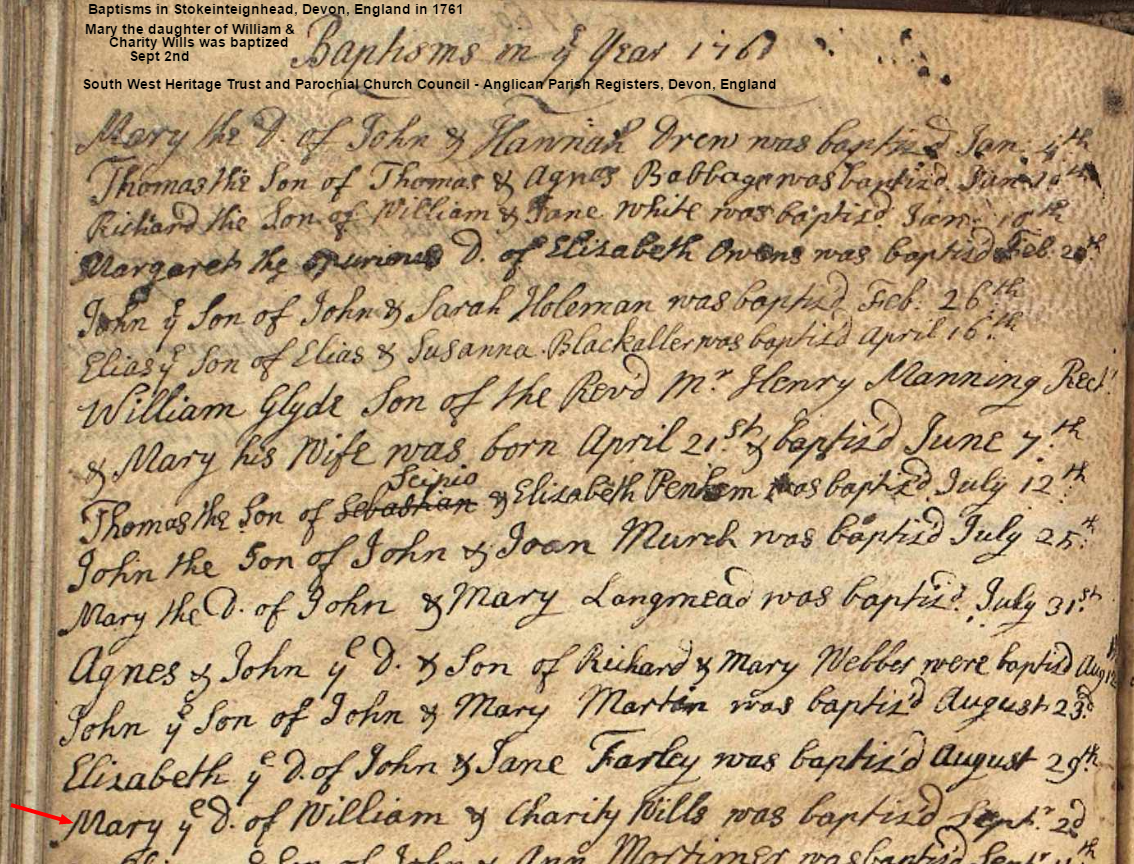 Baptisms in Stokeinteignhead, Devon, England in 1761
Mary the daughter of William &
Charity Wills was baptized
Sept 2nd
Baptisms in yͤ Year 1761
South West Heritage Trust and Parochial Church Council - Anglican Parish Registers, Devon, England
Mary the D. of John & Hannah Drew was baptiz'd Jan: 4th
Thomas the Son of Thomas & Agnes Babbage was baptiz'd Jan: 10th
Richard the Son of William & Jane White was baptiz'd Jan: 10th
Margaret the spurious D. of Elizabeth Owens was baptiz'd Feb.
John yͤ Son of John & Sarah Holeman was baptiz'd Feb. 26th
Elias yͤ Son of Elias & Susanna Blackaller was baptiz'd April 16th
William Glyde Son of the Revd Mr Henry Manning Rectr
& Mary his Wife was born April 21st & baptiz'd June 7th
Scipio
Thomas the Son of Sebastian & Elizabeth was baptiz'd July 12th
John the Son of John & Joan Murch was baptiz'd July 25th
Mary the D. of John & Mary Langmead was baptiz'd July 31st
Agnes & John yͤ D. & Son of Richard & Mary Webber were baptiz'd Aug 12th
John yͤ Son of John & Mary Martin was baptiz'd August 23d
Elizabeth yͤ D. of John & Jane Farley was baptiz'd August 29th
Mary yͤ D. of William & Charity Wills was baptiz'd Septr 2d
yͤ Son of John & Ann Mortimer was baptiz'd